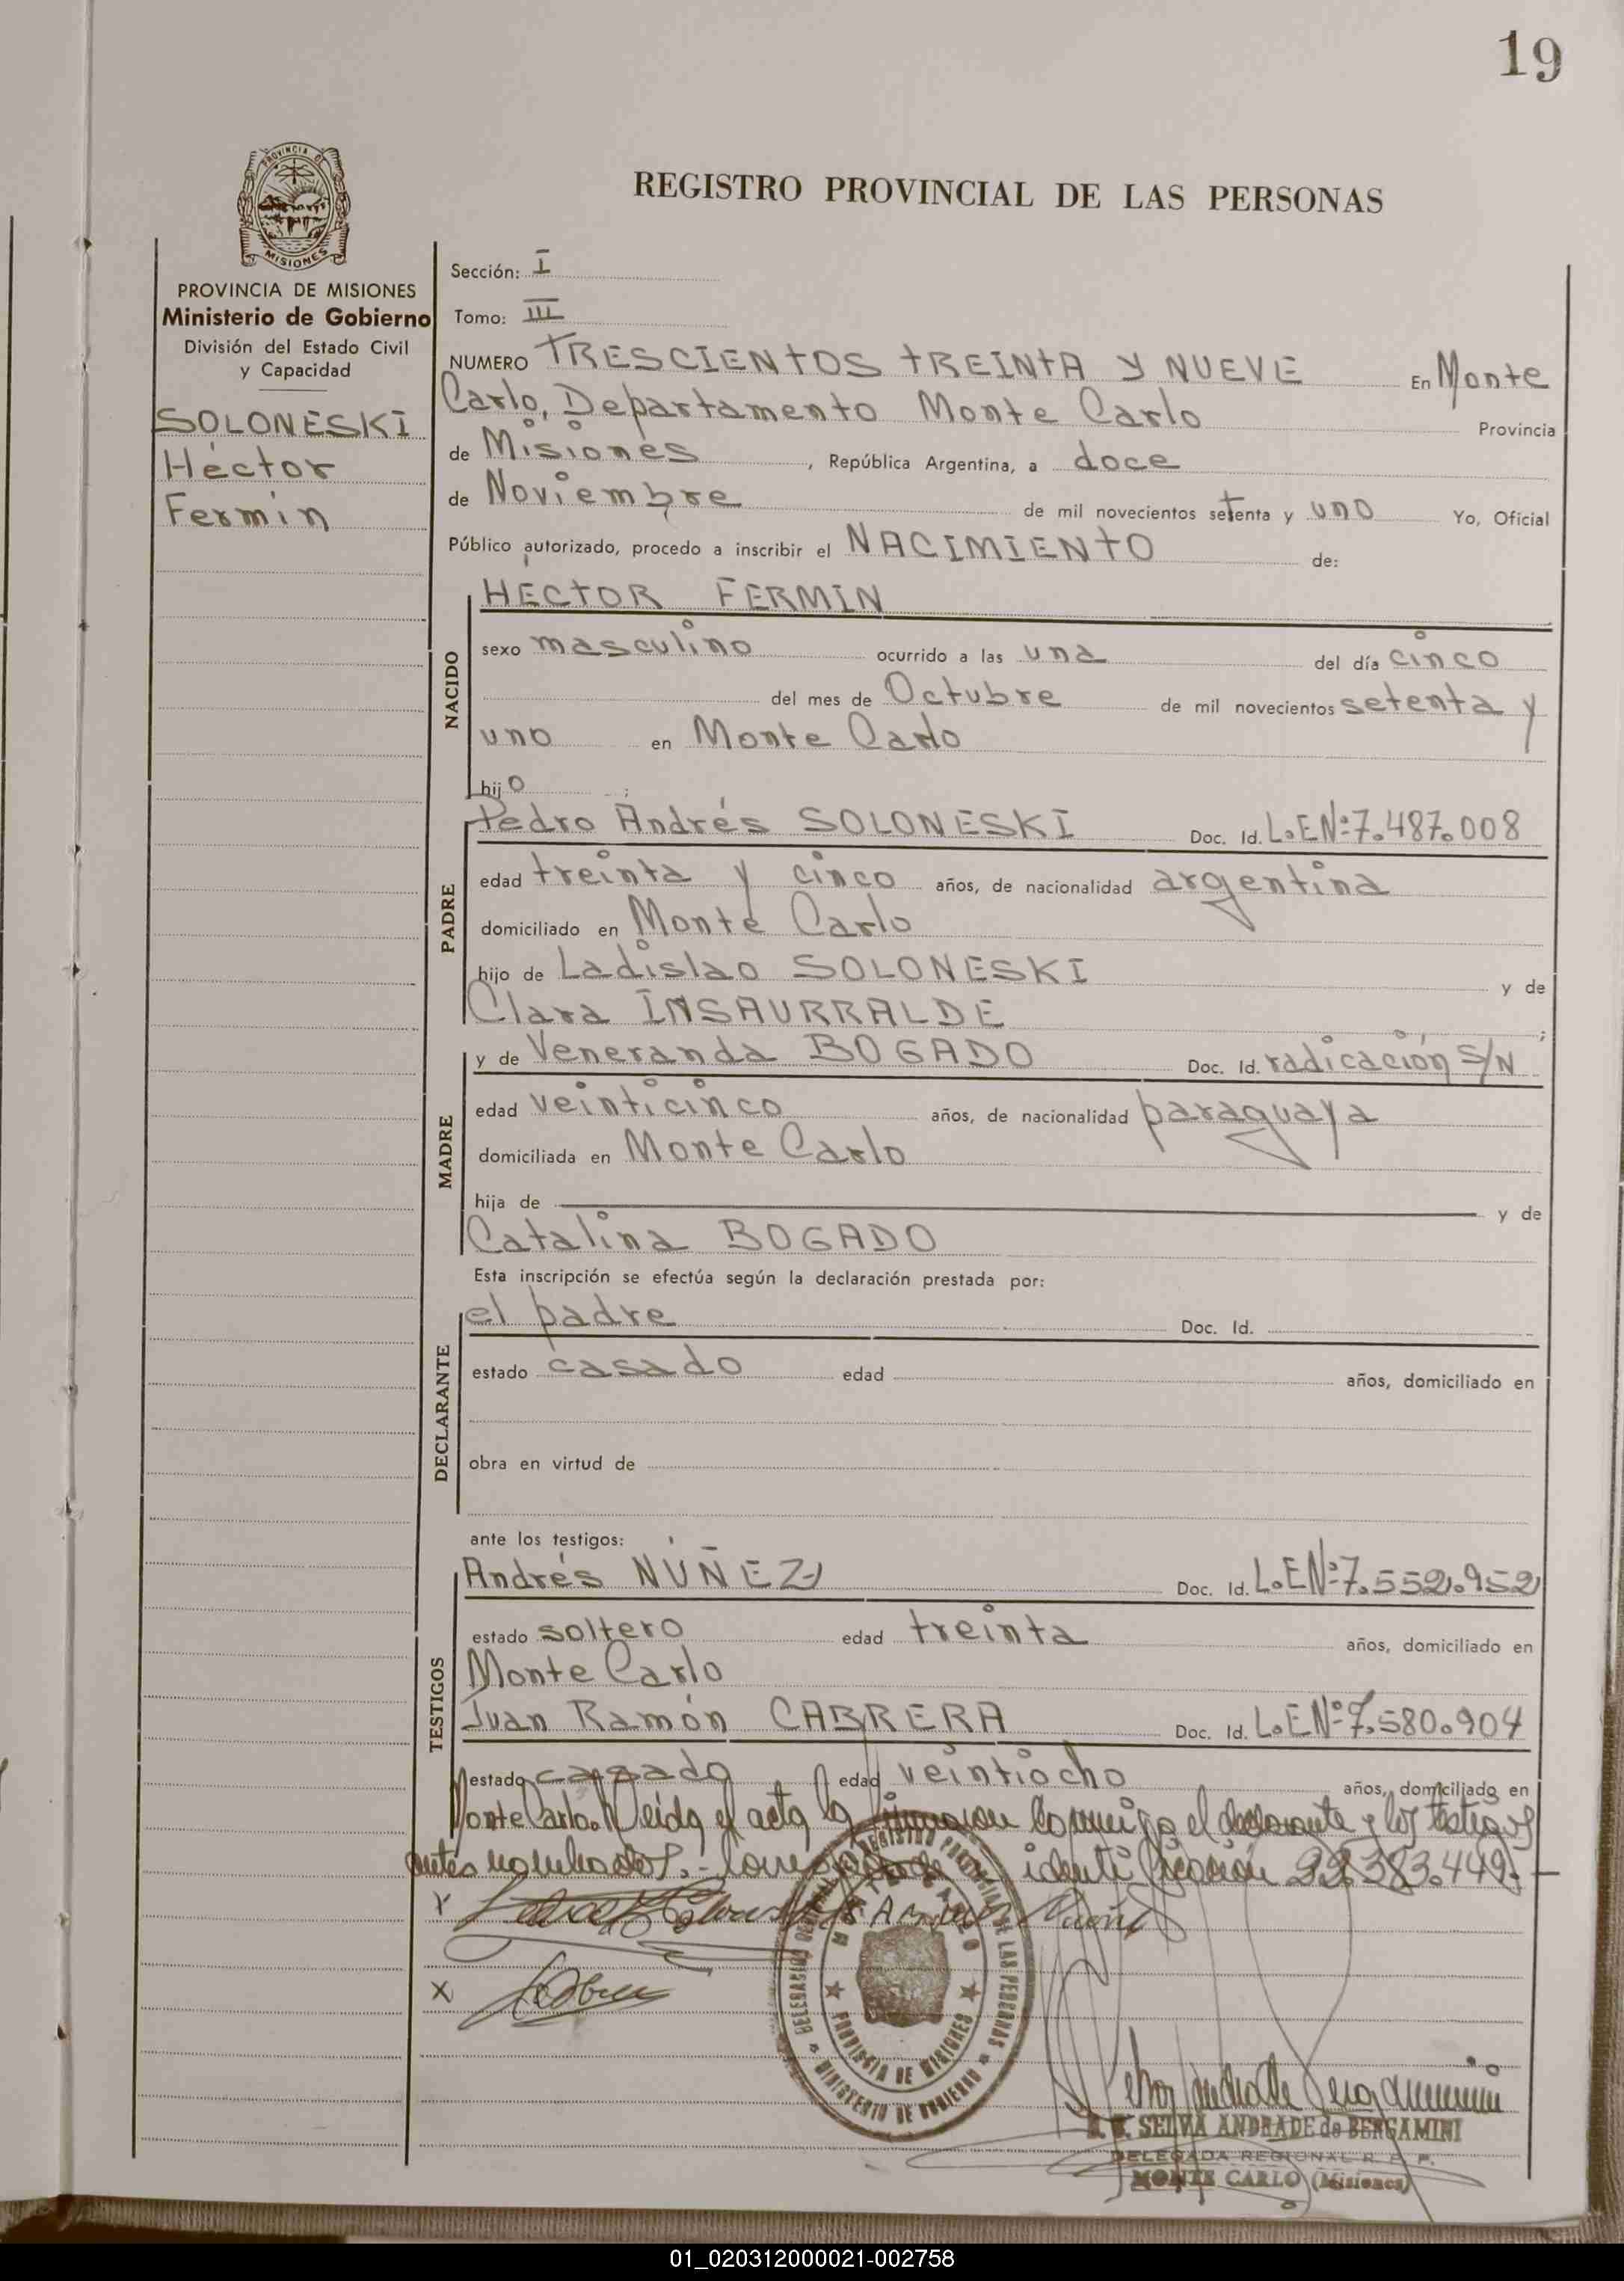 19
PROVINCIA DE
MISIONES
REGISTRO PROVINCIAL DE LAS PERSONAS
PROVINCIA DE MISIONES
Ministerio de Gobierno
División del Estado Civil
y Capacidad
SOLONESKI
Héctor
Fermín
Sección: I
Tomo: III
NUMERO TRESCIENTOS TREINTA Y NUEVE En Monte
Carlo, Departamento Monte Carlo Provincia
de Misiones, República Argentina, a doce
de Noviembre de mil novecientos setenta y uno Yo, Oficial
Público autorizado, procedo a inscribir el NACIMIENTO de:
NACIDO
HECTOR FERMIN
sexo masculino ocurrido a las una del día cinco
del mes de Octubre de mil novecientos setenta y
uno en Monte Carlo
hijo :
PADRE
Pedro Andrés SOLONESKI Doc. Id. L.EN:7.487.008
edad treinta y cinco años, de nacionalidad argentina
domiciliado en Monte Carlo
hijo de Ladislao SOLONESKI y de
Clara INSAURRALDE ;
MADRE
y de Veneranda BOGADO Doc. Id. radicación S/N
edad veinticinco años, de nacionalidad paraguaya
domiciliada en Monte Carlo
hija de y de
Catalina BOGADO
Esta inscripción se efectúa según la declaración prestada por:
DECLARANTE
el padre Doc. Id.
estado casado edad años, domiciliado en
obra en virtud de
ante los testigos:
TESTIGOS
Andrés NÚÑEZ Doc. Id. L.EN:7.552.952
estado soltero edad treinta años, domiciliado en
Monte Carlo
Juan Ramón CABRERA Doc. Id. L.EN:7.580.904
estado casado edad veintiocho años, domiciliado en
Monte Carlo. Leída el acta la firmaron conmigo el declarante y los testigos
antes nombrados.- identificación 22.383.449.-
x
x
DELEGACIÓN REGISTRO PROVINCIAL DE LAS PERSONAS
MONTE CARLO
PROVINCIA DE MISIONES
MINISTERIO DE GOBIERNO
SELVA ANDRADE de BERGAMINI
DELEGADA REGIONAL R. P. P.
MONTE CARLO (Misiones)
01_020312000021-002758